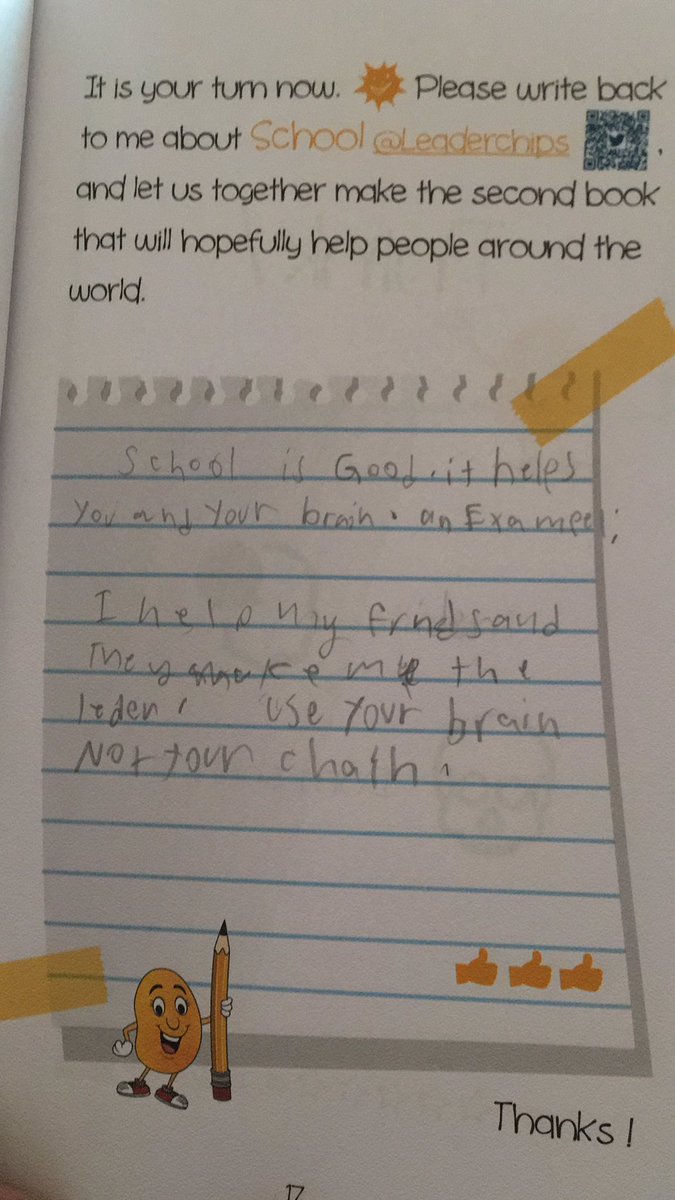 It is your turn now. Please write back
to me about School @Leaderchips ,
and let us together make the second book
that will hopefully help people around the
world.
School is Good. it helps
You and Your brain. an Exampel;
I help my frnds and
They make me the
leder. Use Your brain
Not Your
Thanks!
17